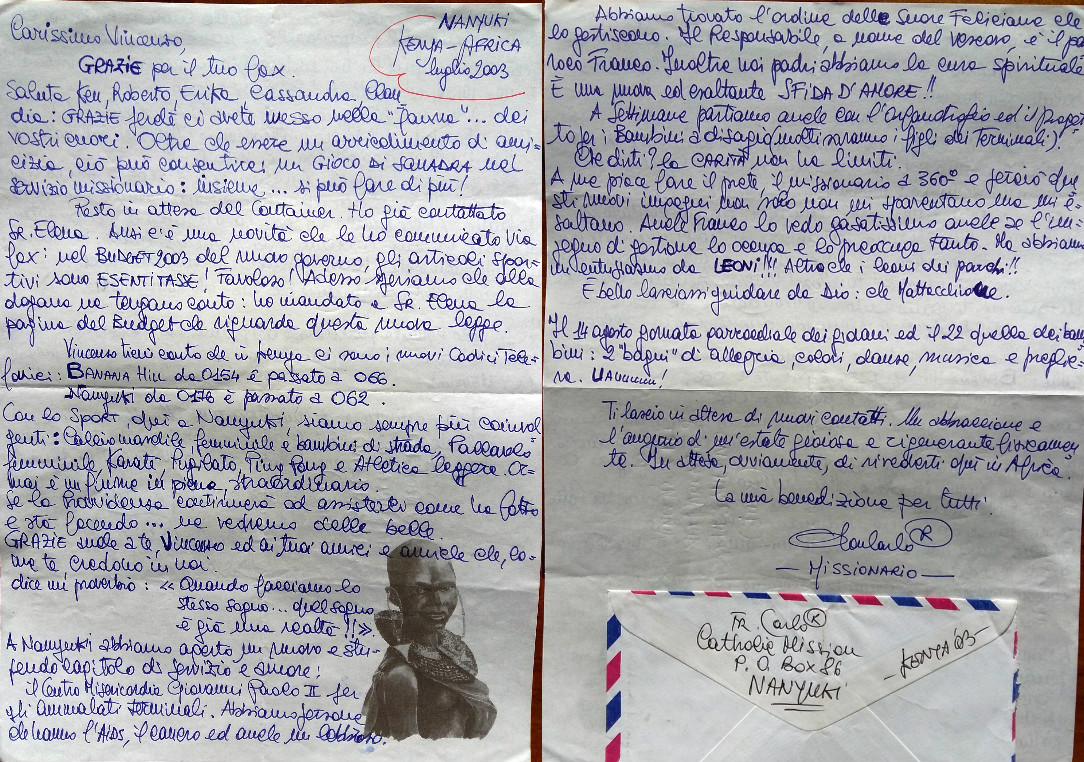 NANYUKI
KENYA-AFRICA
luglio 2003
Carissimo Vincenzo,
GRAZIE per il tuo fax.
Saluta Ken, Roberto, Erika, Cassandra, Clau
dia: GRAZIE perché ci avete messo nella "fauna"... dei
vostri cuori. Oltre che essere un arricchimento di ami-
cizia, ciò può consentirci un GIOCO DI SQUADRA nel
servizio missionario: insieme... si può fare di più!
Resto in attesa del Container. Ho già contattato
Sr. Elena. Anzi c'è una novità che le ho comunicato via
fax: nel BUDGET 2003 del nuovo governo, gli articoli spor-
tivi sono ESENTITASSE! Favoloso! Adesso speriamo che alla
dogana ne tengano conto: ho mandato a Sr. Elena la
pagina del Budget che riguarda questa nuova legge.
Vincenzo tieni conto che in Kenya ci sono i nuovi Codici Tele-
fonici: BANANA HILL da 0154 è passato a 066.
Nanyuki da 0176 è passato a 062.
Con lo Sport, qui a Nanyuki, siamo sempre più coinvol
genti: Calcio maschile, femminile e bambini di strada, Pallavolo
femminile, Karate, Pugilato, Ping Pong e Atletica leggera. Or-
mai è un fiume in piena, straordinario.
Se la Provvidenza continuerà ad assisterci come ha fatto
e sta facendo... ne vedremo delle belle.
GRAZIE anche a te, Vincenzo ed ai tuoi amici e amiche che, co-
me te credono in noi.
dice un proverbio: «Quando facciamo lo
stesso sogno... quel sogno
è già una realtà!!».
A Nanyuki abbiamo aperto un nuovo e stu-
pendo capitolo di servizio e amore:
il Centro Misericordia Giovanni Paolo II per
gli ammalati terminali. Abbiamo persone
che hanno l'AIDS, il cancro ed anche un lebbroso.
Abbiamo trovato l'ordine delle Suore Feliciane che
lo gestiscono. Il Responsabile, a nome del vescovo, è il par
roco Franco. Inoltre noi padri abbiamo la cura spirituale
È una nuova ed esaltante SFIDA D'AMORE!!
A Settimane partiamo anche con l'orfanotrofio ed il proget
to per i Bambini a disagio (molti saranno i figli dei Terminali).
Che dirti? la CARITÀ non ha limiti.
A me piace fare il prete, il missionario a 360° e perciò que
sti nuovi impegni non solo non mi spaventano ma mi e-
saltano. Anche Franco lo vedo gasatissimo anche se l'im-
pegno di gestione lo occupa e lo preoccupa tanto. Ma abbiamo
un entusiasmo da LEONI!!! Altro che i leoni dei parchi!!
È bello lasciarsi guidare da Dio: che Mattacchione.
Il 14 agosto giornata parrocchiale dei giovani ed il 22 quella dei bam
bini: 2 "bagni" di allegria, colori, danze, musica e preghie-
ra. UAuuuuu!
Ti lascio in attesa di nuovi contatti. Un abbraccione e
l'augurio di un'estate gioiosa e rigenerante fisicamen-
te. In attesa, ovviamente, di rivederti qui in Africa.
La mia benedizione per tutti.
Don Carlo®
— MISSIONARIO —
FR. Carlo®
Catholic Mission
P. O. Box 86
NANYUKI
-KENYA '03-